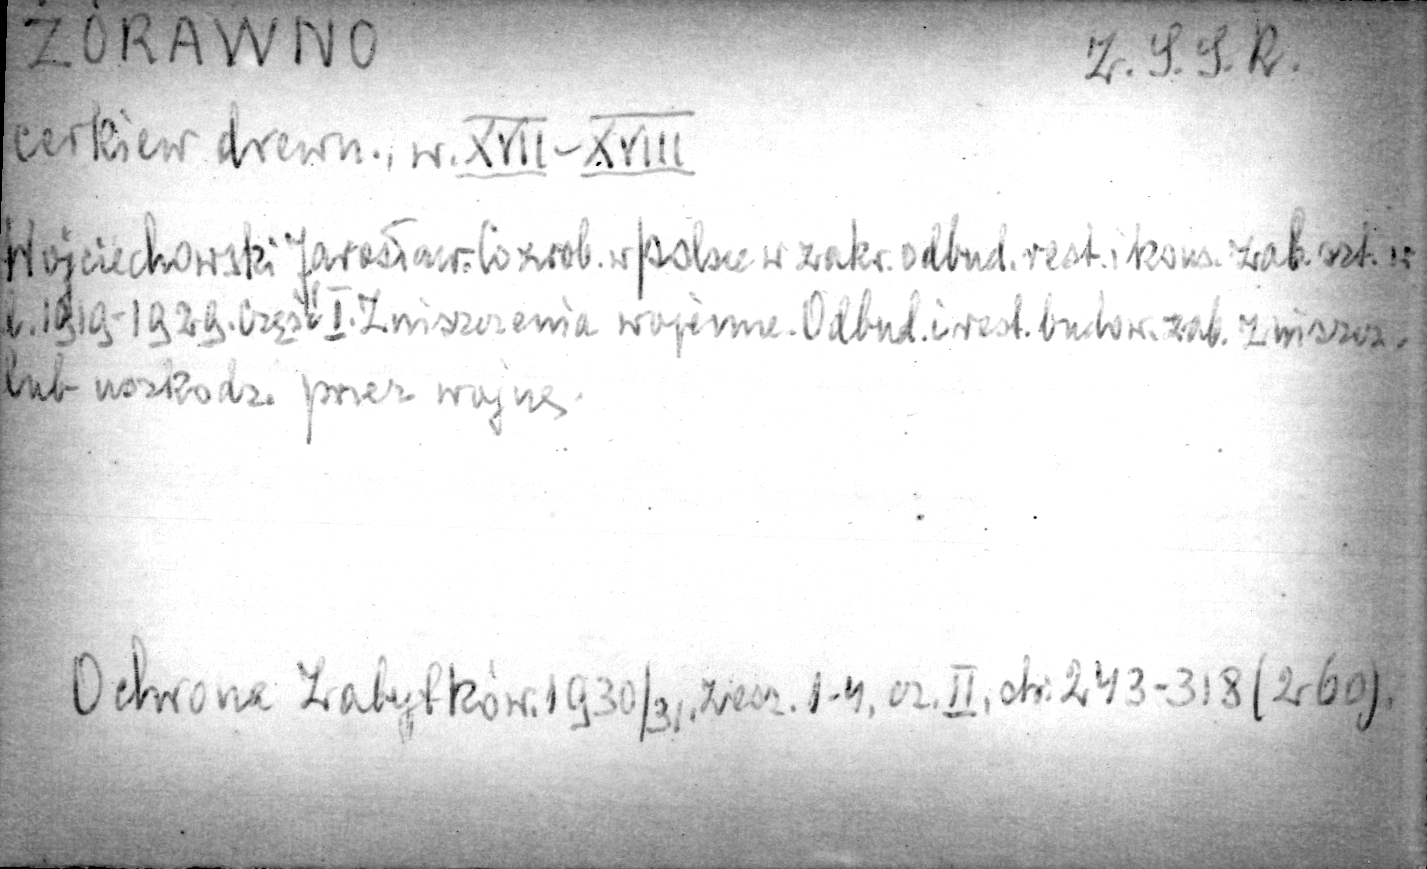 ŻÓRAWNO
Z.S.S.R.
cerkiew drewn., w. XVII-XVIII
Wojciechowski Jarosław: Co zrob. w Polsce w zakr. odbud. rest. i kons. zab. szt. w
l. 1919-1929. Część I. Zniszczenia wojenne. Odbud. i rest. budow. zab. zniszcz.
lub uszkodz. przez wojnę.
Ochrona Zabytków. 1930/31, zesz. 1-4, cz. II, str. 243-318 (260).